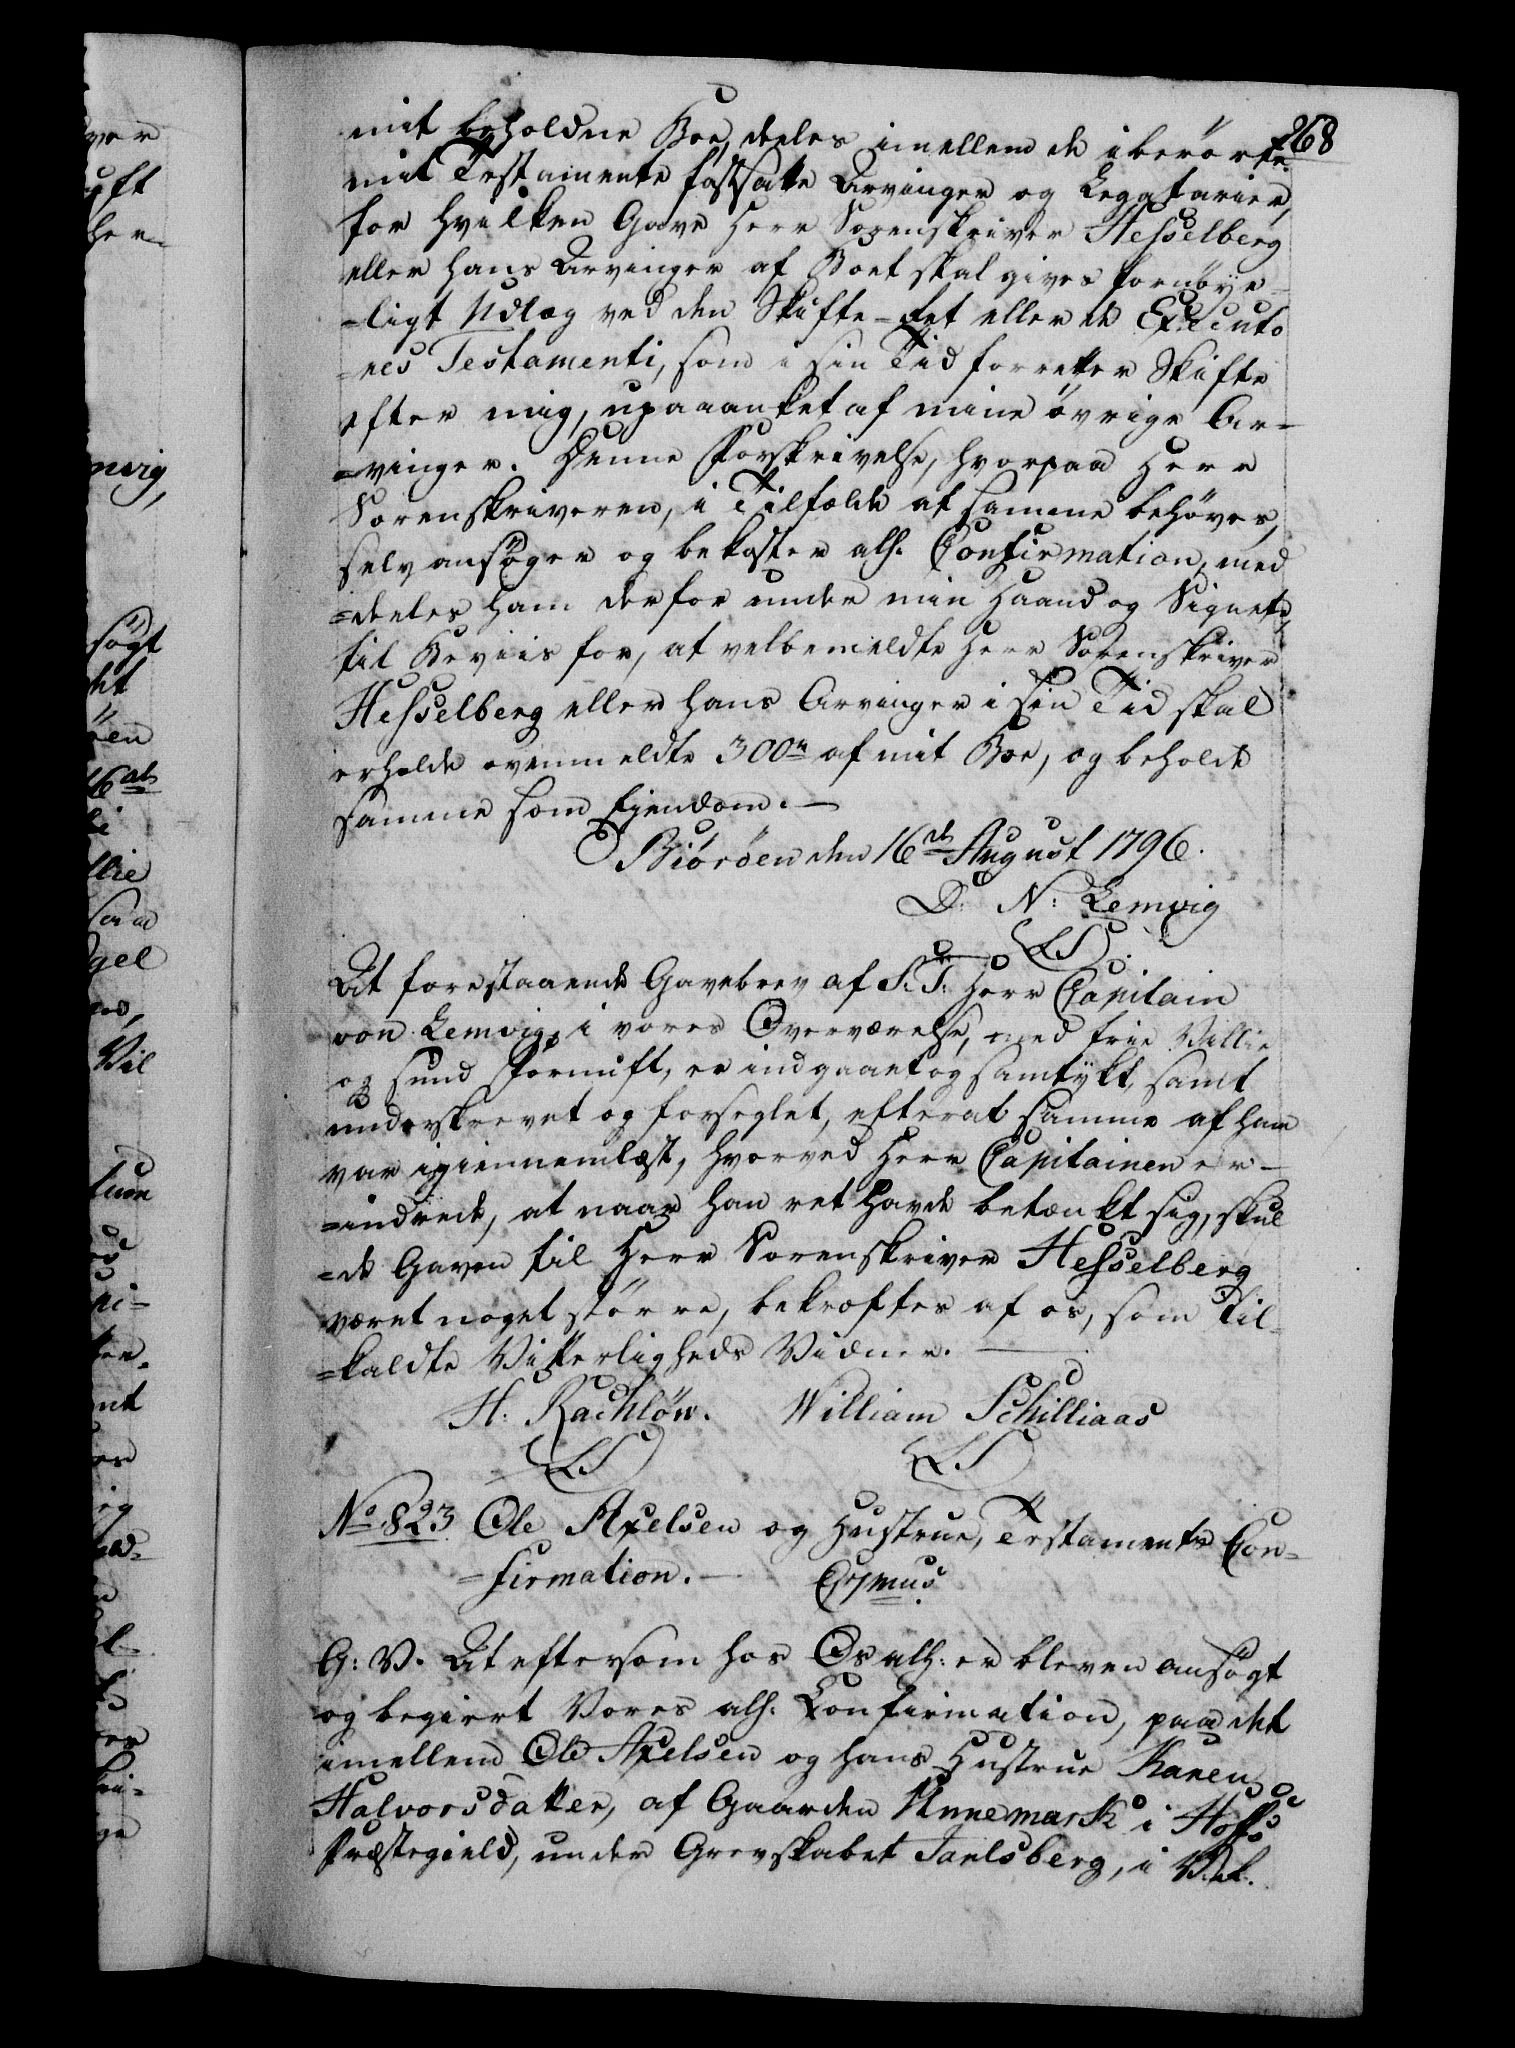 268
mit beholdne Boe, deeles imellem de i berörte
mit Testamente fastsatte Arvinger og Legatarier,
for hvilken Gave Herr Sorenskriver Hesselberg
eller hans Arvinger af Boet skal gives fornöye-
=ligt Udlæg ved den Skifte-Ret eller de Executo
=res Testamenti, som i sin Tid forretter Skifte
efter mig, upaaanket af mine övrige Ar-
=vinger. Denne Forskrivelse, hvorpaa Herr
Sorenskriveren, i Tilfælde at samme behöves,
selv ansöger og bekoster alh. Confirmation, med
=deeles ham derfor under min Haand og Signete,
til Beviis for, at velbemeldte Herr Sorenskriver
Hesselberg eller hans Arvinger i sin Tid skal
erholde ovenmeldte 300 af mit Boe, og beholde
samme som Ejendom.—
Biöröen den 16de August 1796.
D: N: Lemvig
(L.S.)
At forestaaende Gavebrev af S. T. Herr Capitain
von Lemvig, i vores Overværelse, med frie Villie
og sund Fornuft, er indgaaet og samtykt, samt
underskrevet og forseglet, efterat samme af ham
var igiennemlæst, hvorved Herr Capitainen er-
=indrede, at naar han ret havde betænkt sig, skul
=de Gaven til Herr Sorenskriver Hesselberg
været noget större, bekræftes af os, som til-
=kaldte Vitterligheds Vidner.
H: Rachlöw. William Schilliaas
(L.S.) (L.S.)
No 823 Ole Axelsen og Hustrue, Testaments Con-
=firmation.—
G: V. At eftersom hos Os alh: er bleven ansögt
og begiert Vores alh. Confirmation, paa det
imellem Ole Axelsen og hans Hustrue Karen
Halvorsdatter, af Gaarden Unnemark i Hoffs
Præstegield, under Grevskabet Jarlsberg, i